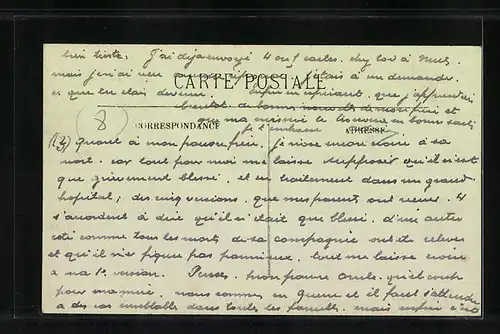 bien triste. J'ai déjà envoyé 4 ou 5 cartes. chez toi à
mais je n'ai rien reçu j'étais à me demander
ce que tu étais devenu. Enfin en espérant que j'apprendrai
bientôt de bonnes nouvelles de mon père et
que ma missive te trouvera en bonne santé
je t'embrasse
CARTE POSTALE
8
CORRESPONDANCE ADRESSE
(2) Quant à mon pauvre frère, je n'ose encore croire à sa
mort. car tout pour moi me laisse supposer qu'il n'est
que grièvement blessé. et en traitement dans un grand
hôpital; des cinq versions que mes parents ont reçues. 4
s'accordent à dire qu'il n'était que blessé. d'un autre
côté comme tous les morts de sa compagnie ont été relevés
et qu'il n'y figure pas parmi eux. tout me laisse croire
à ma 1e version. Penses, mon pauvre oncle, quel coup
pour ma mère. nous sommes en guerre et il faut s'attendre
à des cas semblables dans toutes les familles. mais enfin c'est